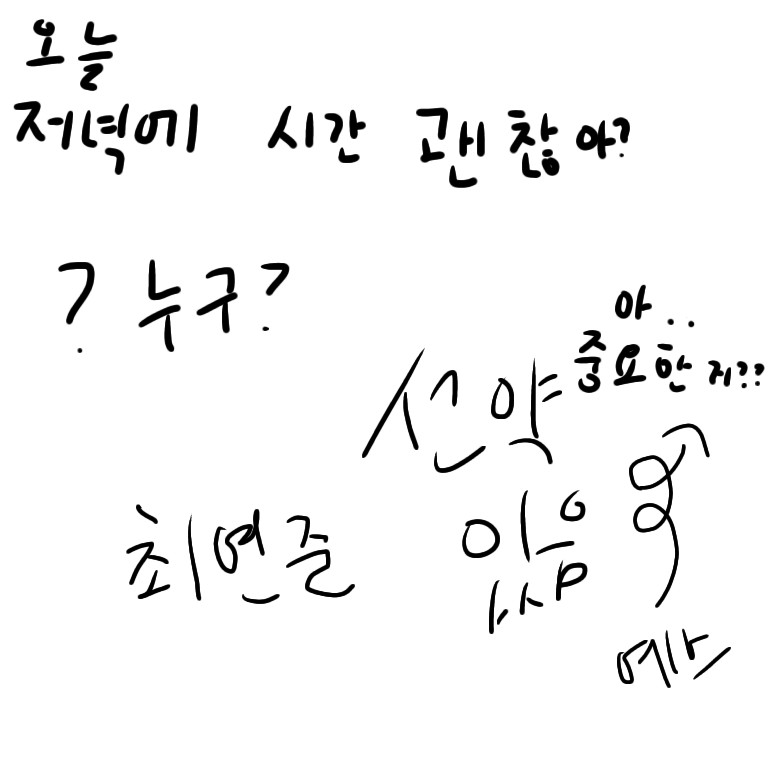 오늘
저녁에 시간 괜찮아?
? 누구?
아..
중요한 지??
선약
있음
최연준
예스